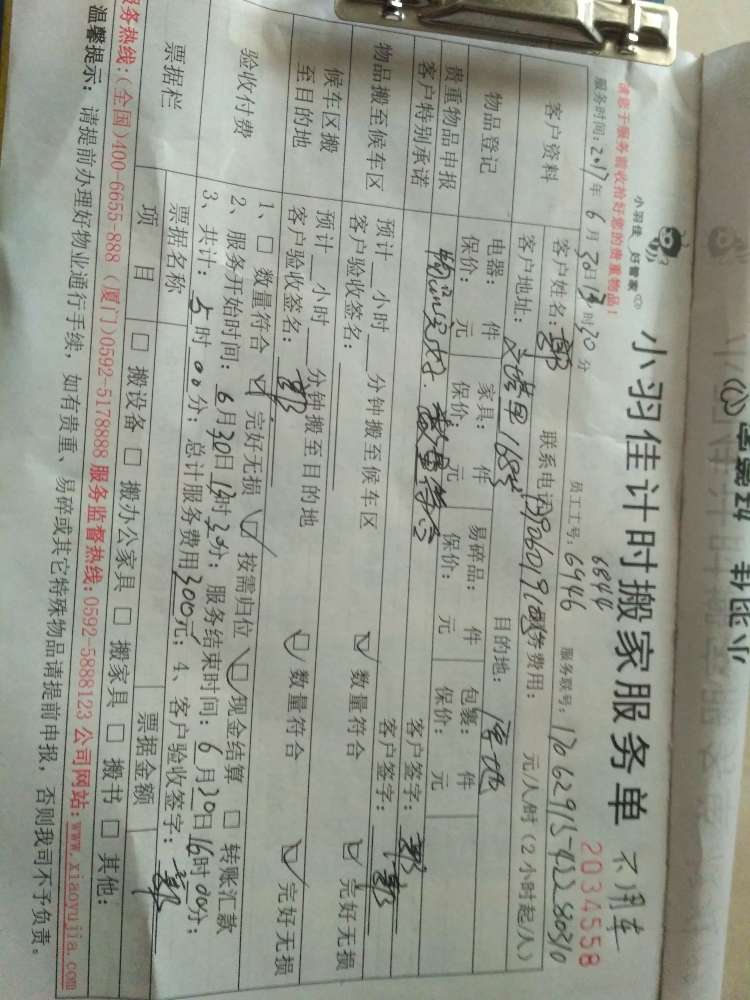 小羽佳 好管家
小羽佳计时搬家服务单 不用车
请您于服务前收拾好您的贵重物品!
6844
员工工号: 6946
2034558
服务时间: 2017年6月30日13时30分
服务联号:
客户资料
客户姓名: 郭
联系电话:
服务费用: 元/人/时(2小时起/人)
客户地址:
目的地:
物品登记
电器: 件 家具: 件 易碎品: 件 包裹: 件
保价: 元 保价: 元 保价: 元 保价: 元
贵重物品申报
客户特别承诺
物品完好. 数量符合
客户签字: 郭
物品搬至候车区
预计__小时__分钟搬至候车区
客户验收签名:
☑ 数量符合 ☑ 完好无损
客户签字: 郭
候车区搬至目的地
预计__小时__分钟搬至目的地
客户验收签名: 郭
☑ 数量符合 ☑ 完好无损
验收付费
1、☐ 数量符合 ☑ 完好无损 ☑ 按需归位 ☑ 现金结算 ☐ 转账汇款
2、服务开始时间: 6月30日13时30分; 服务结束时间: 6月30日16时00分;
3、共计: 5时00分; 总计服务费用300元; 4、客户验收签字: 郭
票据栏
票据名称 票据金额
项目 ☐ 搬设备 ☐ 搬办公家具 ☐ 搬家具 ☐ 搬书 ☐ 其他:
服务热线:(全国)400-6655-888 (厦门)0592-5178888 服务监督热线:0592-5888123 公司网站:www.xiaoyujia.com
温馨提示: 请提前办理好物业通行手续, 如有贵重、易碎或其它特殊物品请提前申报, 否则我司不予负责。